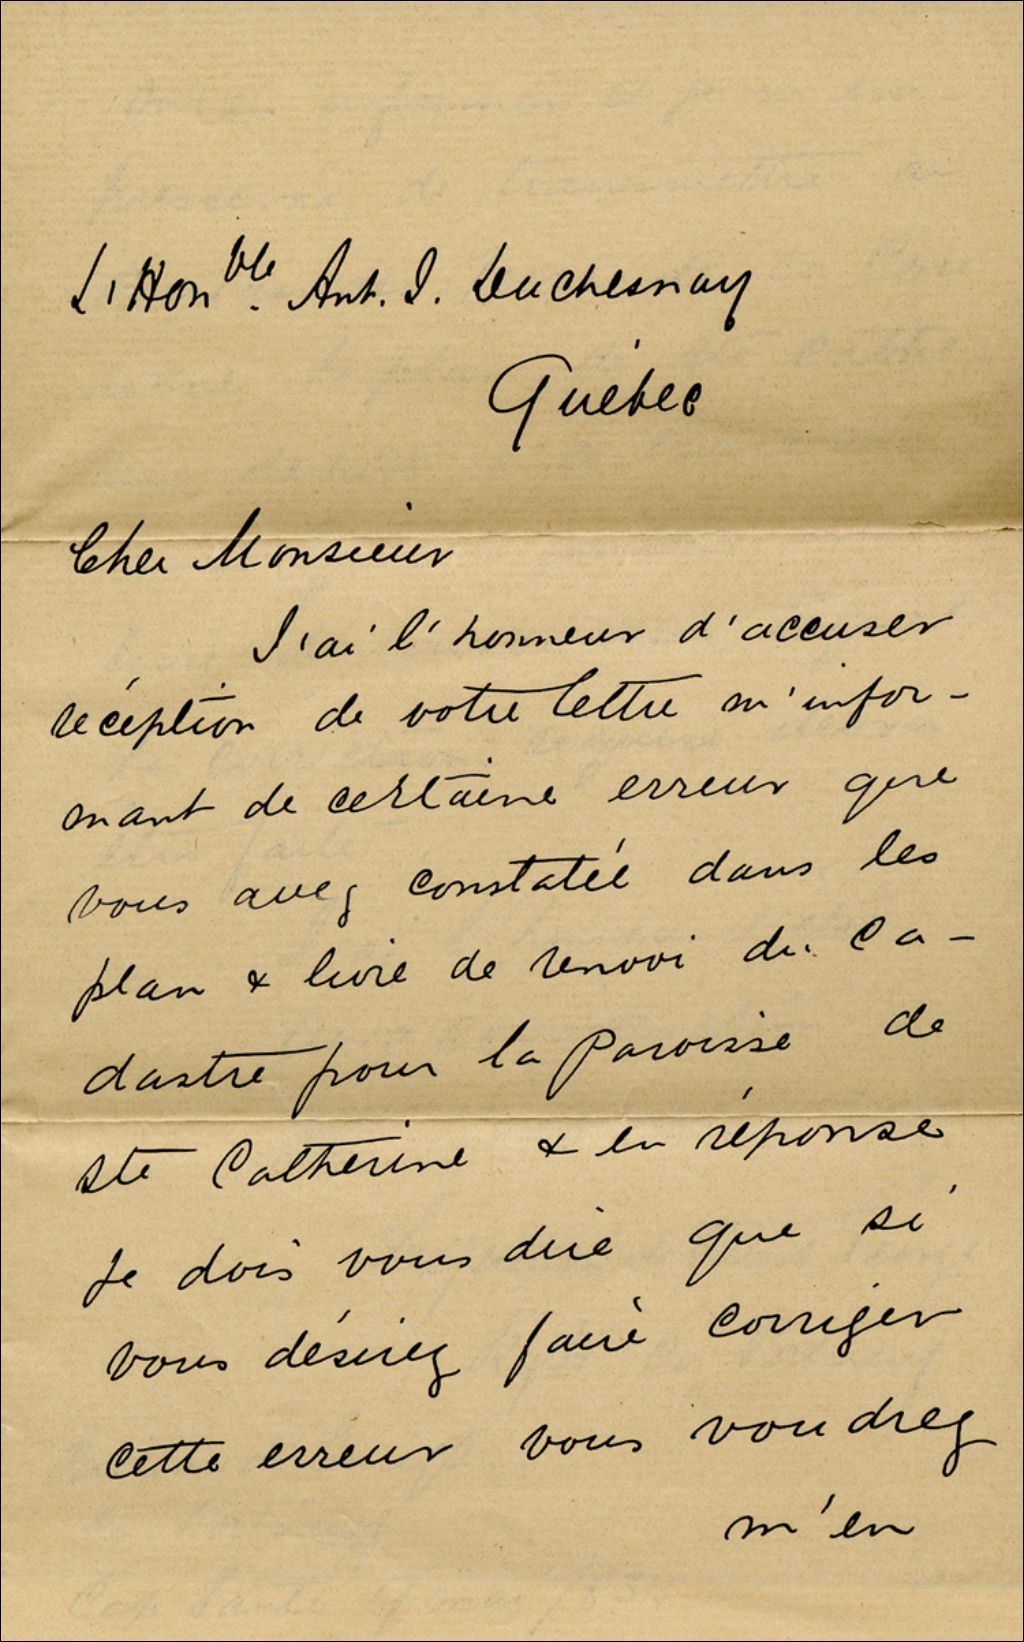 L'Hon^ble. Ant. J. Duchesnay
Québec
Cher Monsieur
J'ai l'honneur d'accuser
réception de votre lettre m'infor-
mant de certaine erreur que
vous avez constatée dans les
plan & livre de renvoi du Ca-
dastre pour la Paroisse de
Ste Catherine & en réponse
Je dois vous dire que si
vous désirez faire corriger
cette erreur vous voudrez
m'en